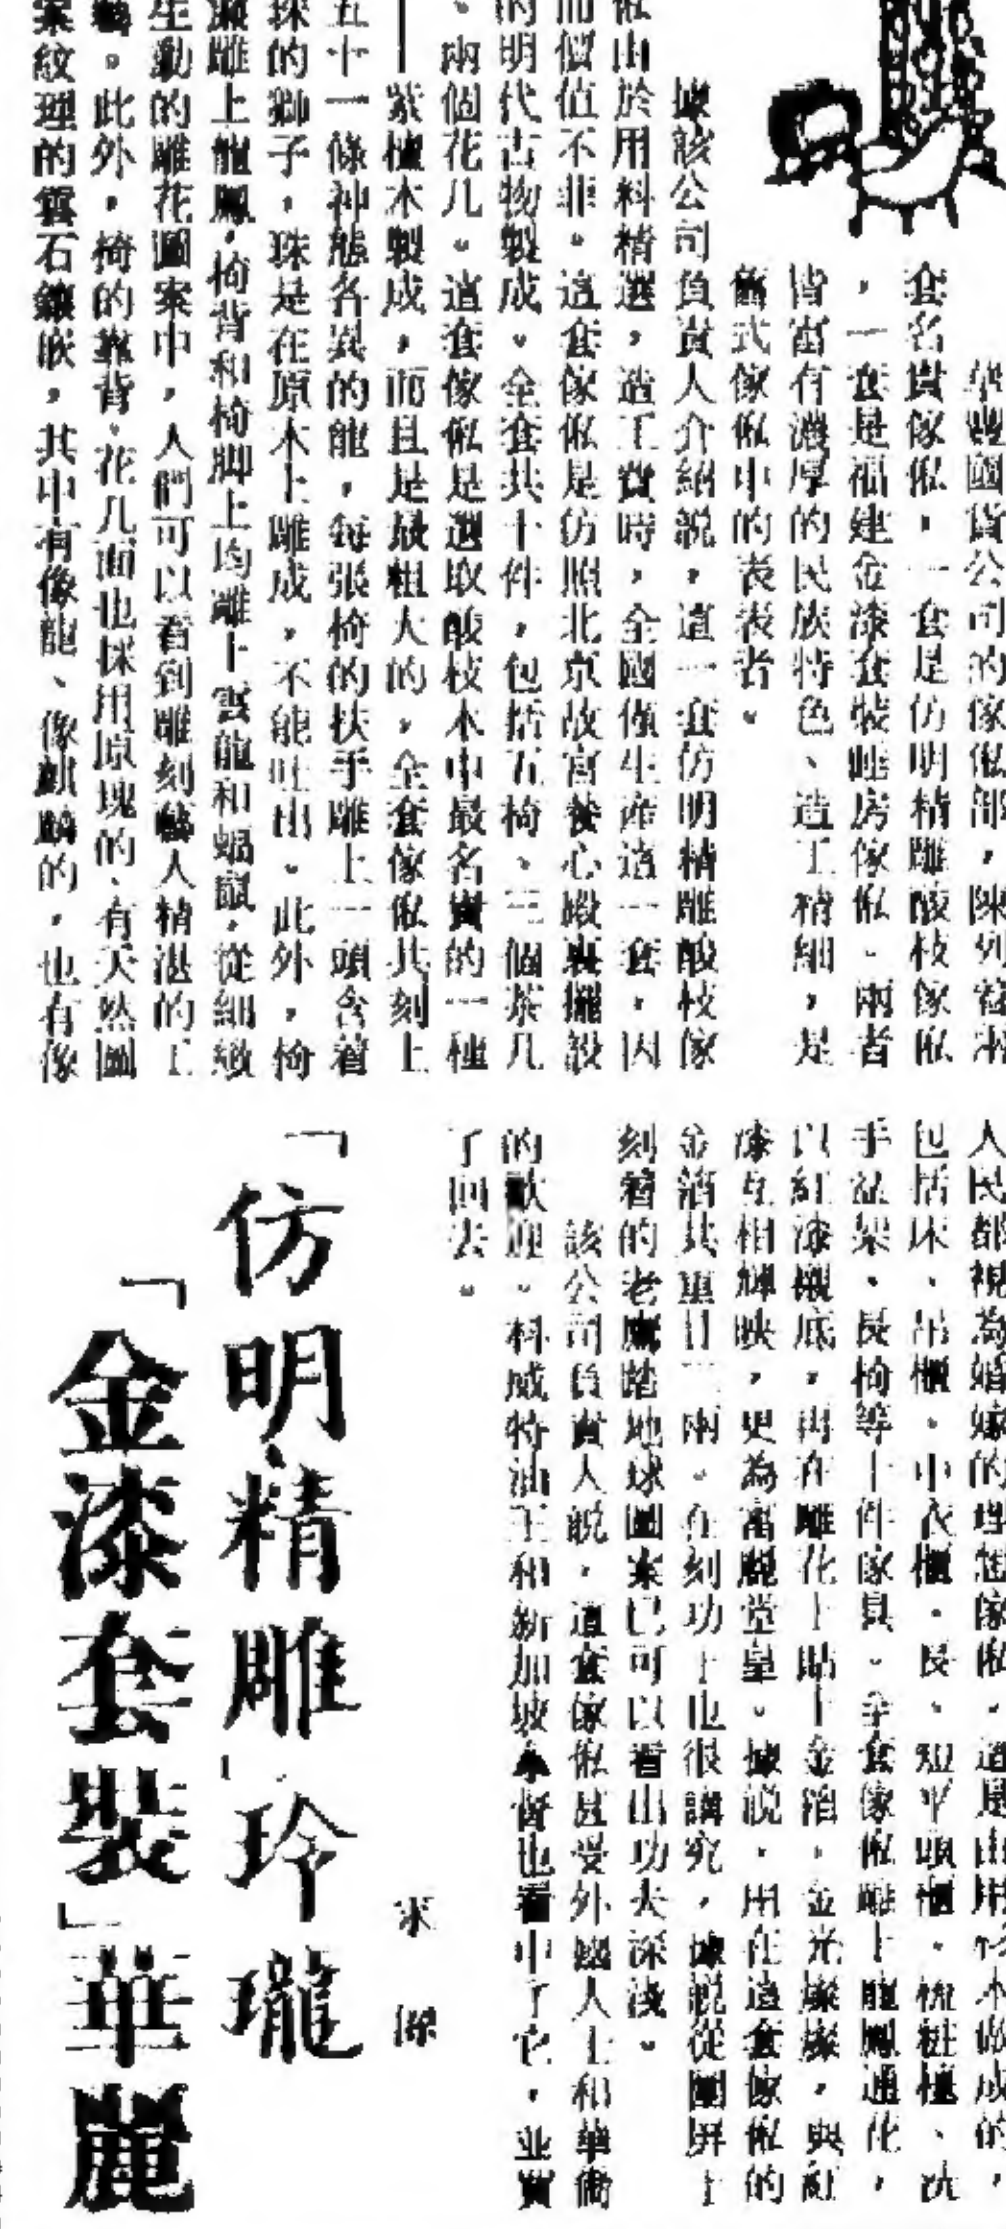 華豐國貨公司的傢俬部，陳列着兩
套名貴傢俬，一套是仿明精雕酸枝傢俬
，一套是福建金漆套裝睡房傢俬。兩者
皆富有濃厚的民族特色、造工精細，是
舊式傢俬中的表表者。
據該公司負責人介紹說，這一套仿明精雕酸枝傢
俬由於用料精選，造工費時，全國僅生產這一套，因
而價值不菲。這套傢俬是仿照北京故宮養心殿裏擺設
的明代古物製成。全套共十件，包括五椅、三個茶几
、兩個花几。這套傢俬是選取酸枝木中最名貴的一種
——紫檀木製成，而且是最粗大的，全套傢俬共刻上
五十一條神態各異的龍，每張椅的扶手雕上一頭含着
珠的獅子，珠是在原木上雕成，不能吐出。此外，椅
雕上龍鳳，椅背和椅脚上均雕上雲龍和蝠鼠，從細緻
生動的雕花圖案中，人們可以看到雕刻藝人精湛的工
。此外，椅的靠背、花几面也採用原塊的、有天然圖
案紋理的雲石鑲嵌，其中有像龍、像麒麟的，也有像
人民都視為婚嫁的理想傢俬，這是由用杉木做成的，
包括床、吊櫃、中衣櫃、長、短平頭櫃、梳粧檯、洗
手盆架、長椅等十件傢具。全套傢俬雕上龍鳳通花，
以紅漆襯底，再在雕花上貼上金箔，金光燦燦，與紅
漆互相輝映，更為富麗堂皇。據說，用在這套傢俬的
金箔共重廿一兩。在刻功上也很講究，據說從圍屏上
刻着的老鷹踏地球圖案已可以看出功夫深淺。
該公司負責人說，這套傢俬甚受外國人士和華僑
的歡迎。科威特油王和新加坡也看中了它，並買
了回去。
家 傑
「仿明精雕」玲瓏
「金漆套裝」華麗